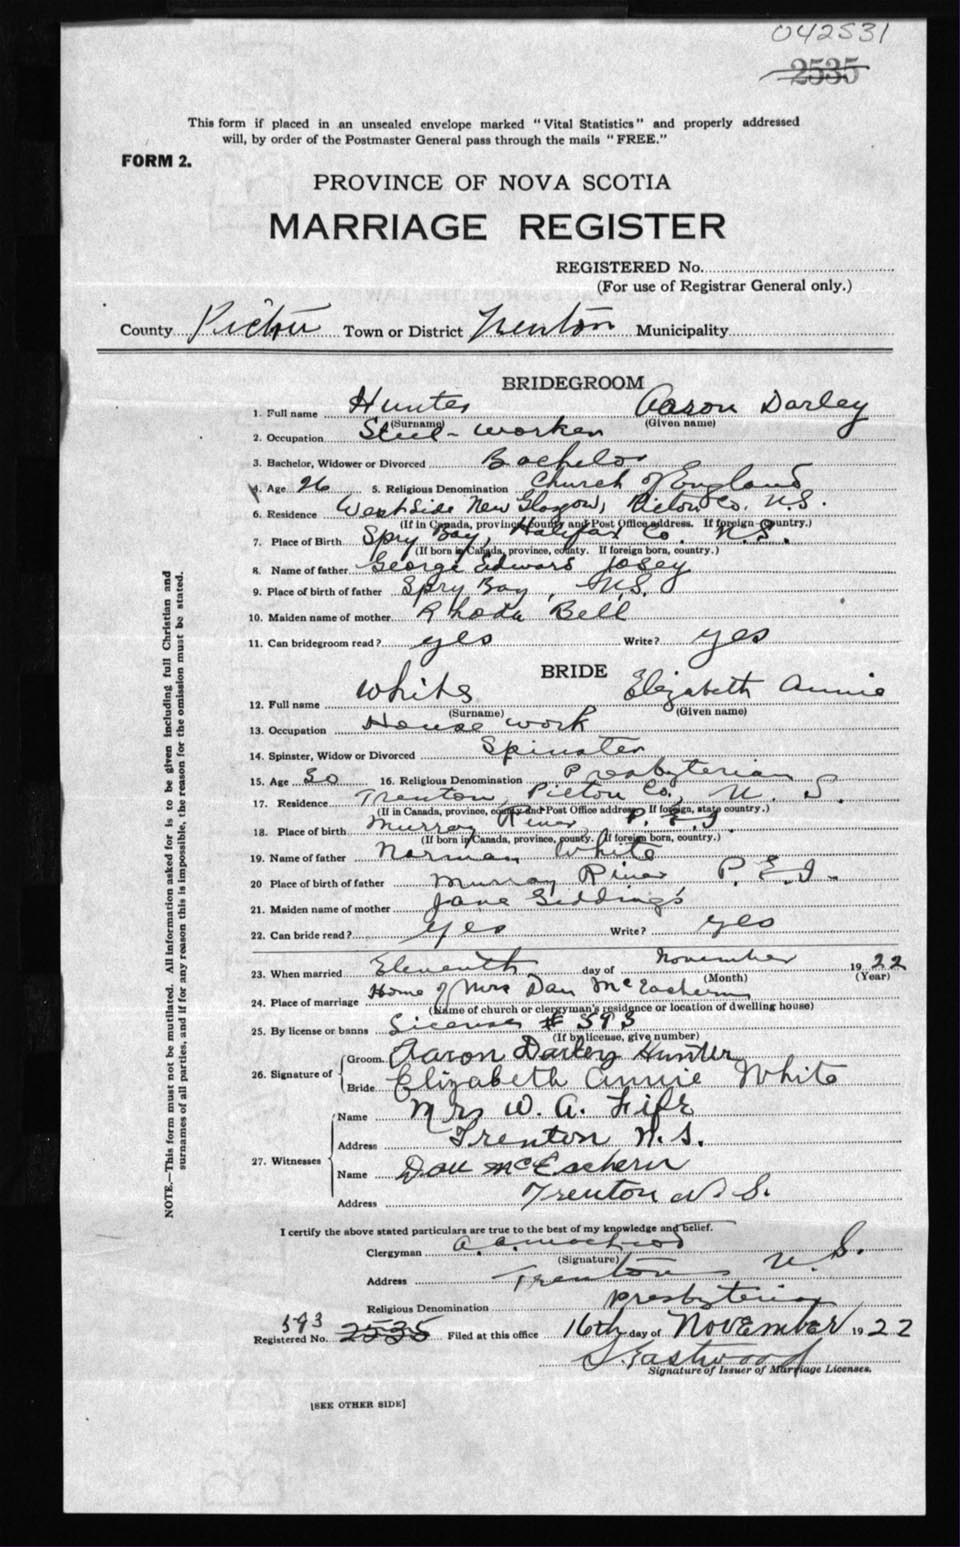 042531
2535
This form if placed in an unsealed envelope marked "Vital Statistics" and properly addressed
will, by order of the Postmaster General pass through the mails "FREE."
FORM 2.
PROVINCE OF NOVA SCOTIA
MARRIAGE REGISTER
REGISTERED No.
(For use of Registrar General only.)
County Pictou Town or District Trenton Municipality
BRIDEGROOM
1. Full name Hunter Aaron Darley
(Surname) (Given name)
2. Occupation Steel-worker
3. Bachelor, Widower or Divorced Bachelor
4. Age 26 5. Religious Denomination Church of England
6. Residence West Side New Glasgow, Pictou Co. N.S.
(If in Canada, province, county and Post Office address. If foreign country.)
7. Place of Birth Spry Bay, Halifax Co. N.S.
(If born in Canada, province, county. If foreign born, country.)
8. Name of father George Edward Josey
9. Place of birth of father Spry Bay, N.S.
10. Maiden name of mother Rhoda Bell
11. Can bridegroom read? yes Write? yes
BRIDE
12. Full name White Elizabeth Annie
(Surname) (Given name)
13. Occupation House work
14. Spinster, Widow or Divorced Spinster
15. Age 30 16. Religious Denomination Presbyterian
17. Residence Trenton, Pictou Co., N. S.
(If in Canada, province, county and Post Office address. If foreign, state country.)
18. Place of birth Murray River, P.E.I.
(If born in Canada, province, county. If foreign born, country.)
19. Name of father Norman White
20 Place of birth of father Murray River P.E.I.
21. Maiden name of mother Jane Giddings
22. Can bride read? yes Write? yes
23. When married Eleventh day of November 1922
(Month) (Year)
24. Place of marriage Home of Mrs Dan McEachern
(Name of church or clergyman's residence or location of dwelling house)
25. By license or banns License # 593
(If by license, give number)
26. Signature of Groom Aaron Darley Hunter
Bride Elizabeth Annie White
27. Witnesses Name Mrs W. A. Fife
Address Trenton N.S.
Name Dan McEachern
Address Trenton N S.
I certify the above stated particulars are true to the best of my knowledge and belief.
Clergyman
(Signature)
Address Trenton N.S.
Religious Denomination Presbyterian
593
Registered No. 2535 Filed at this office 16th day of November 1922
S. Eastwood
Signature of Issuer of Marriage Licenses.
[SEE OTHER SIDE]
NOTE.—This form must not be mutilated. All information asked for is to be given including full Christian and
surnames of all parties, and if for any reason this is impossible, the reason for the omission must be stated.